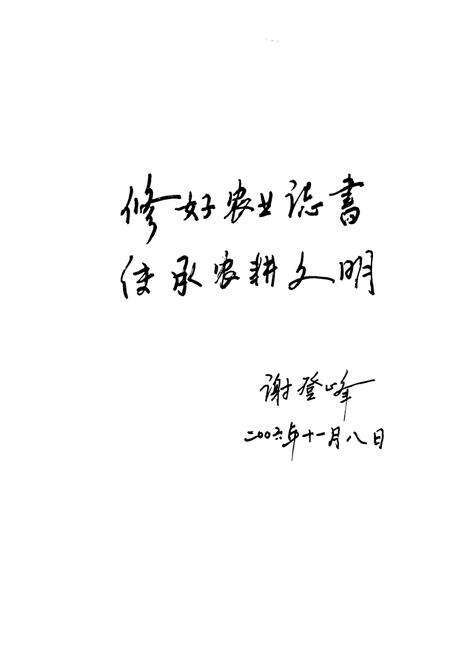 修好农业誌書
传承农耕文明
谢登峰
二00六年十一月八日